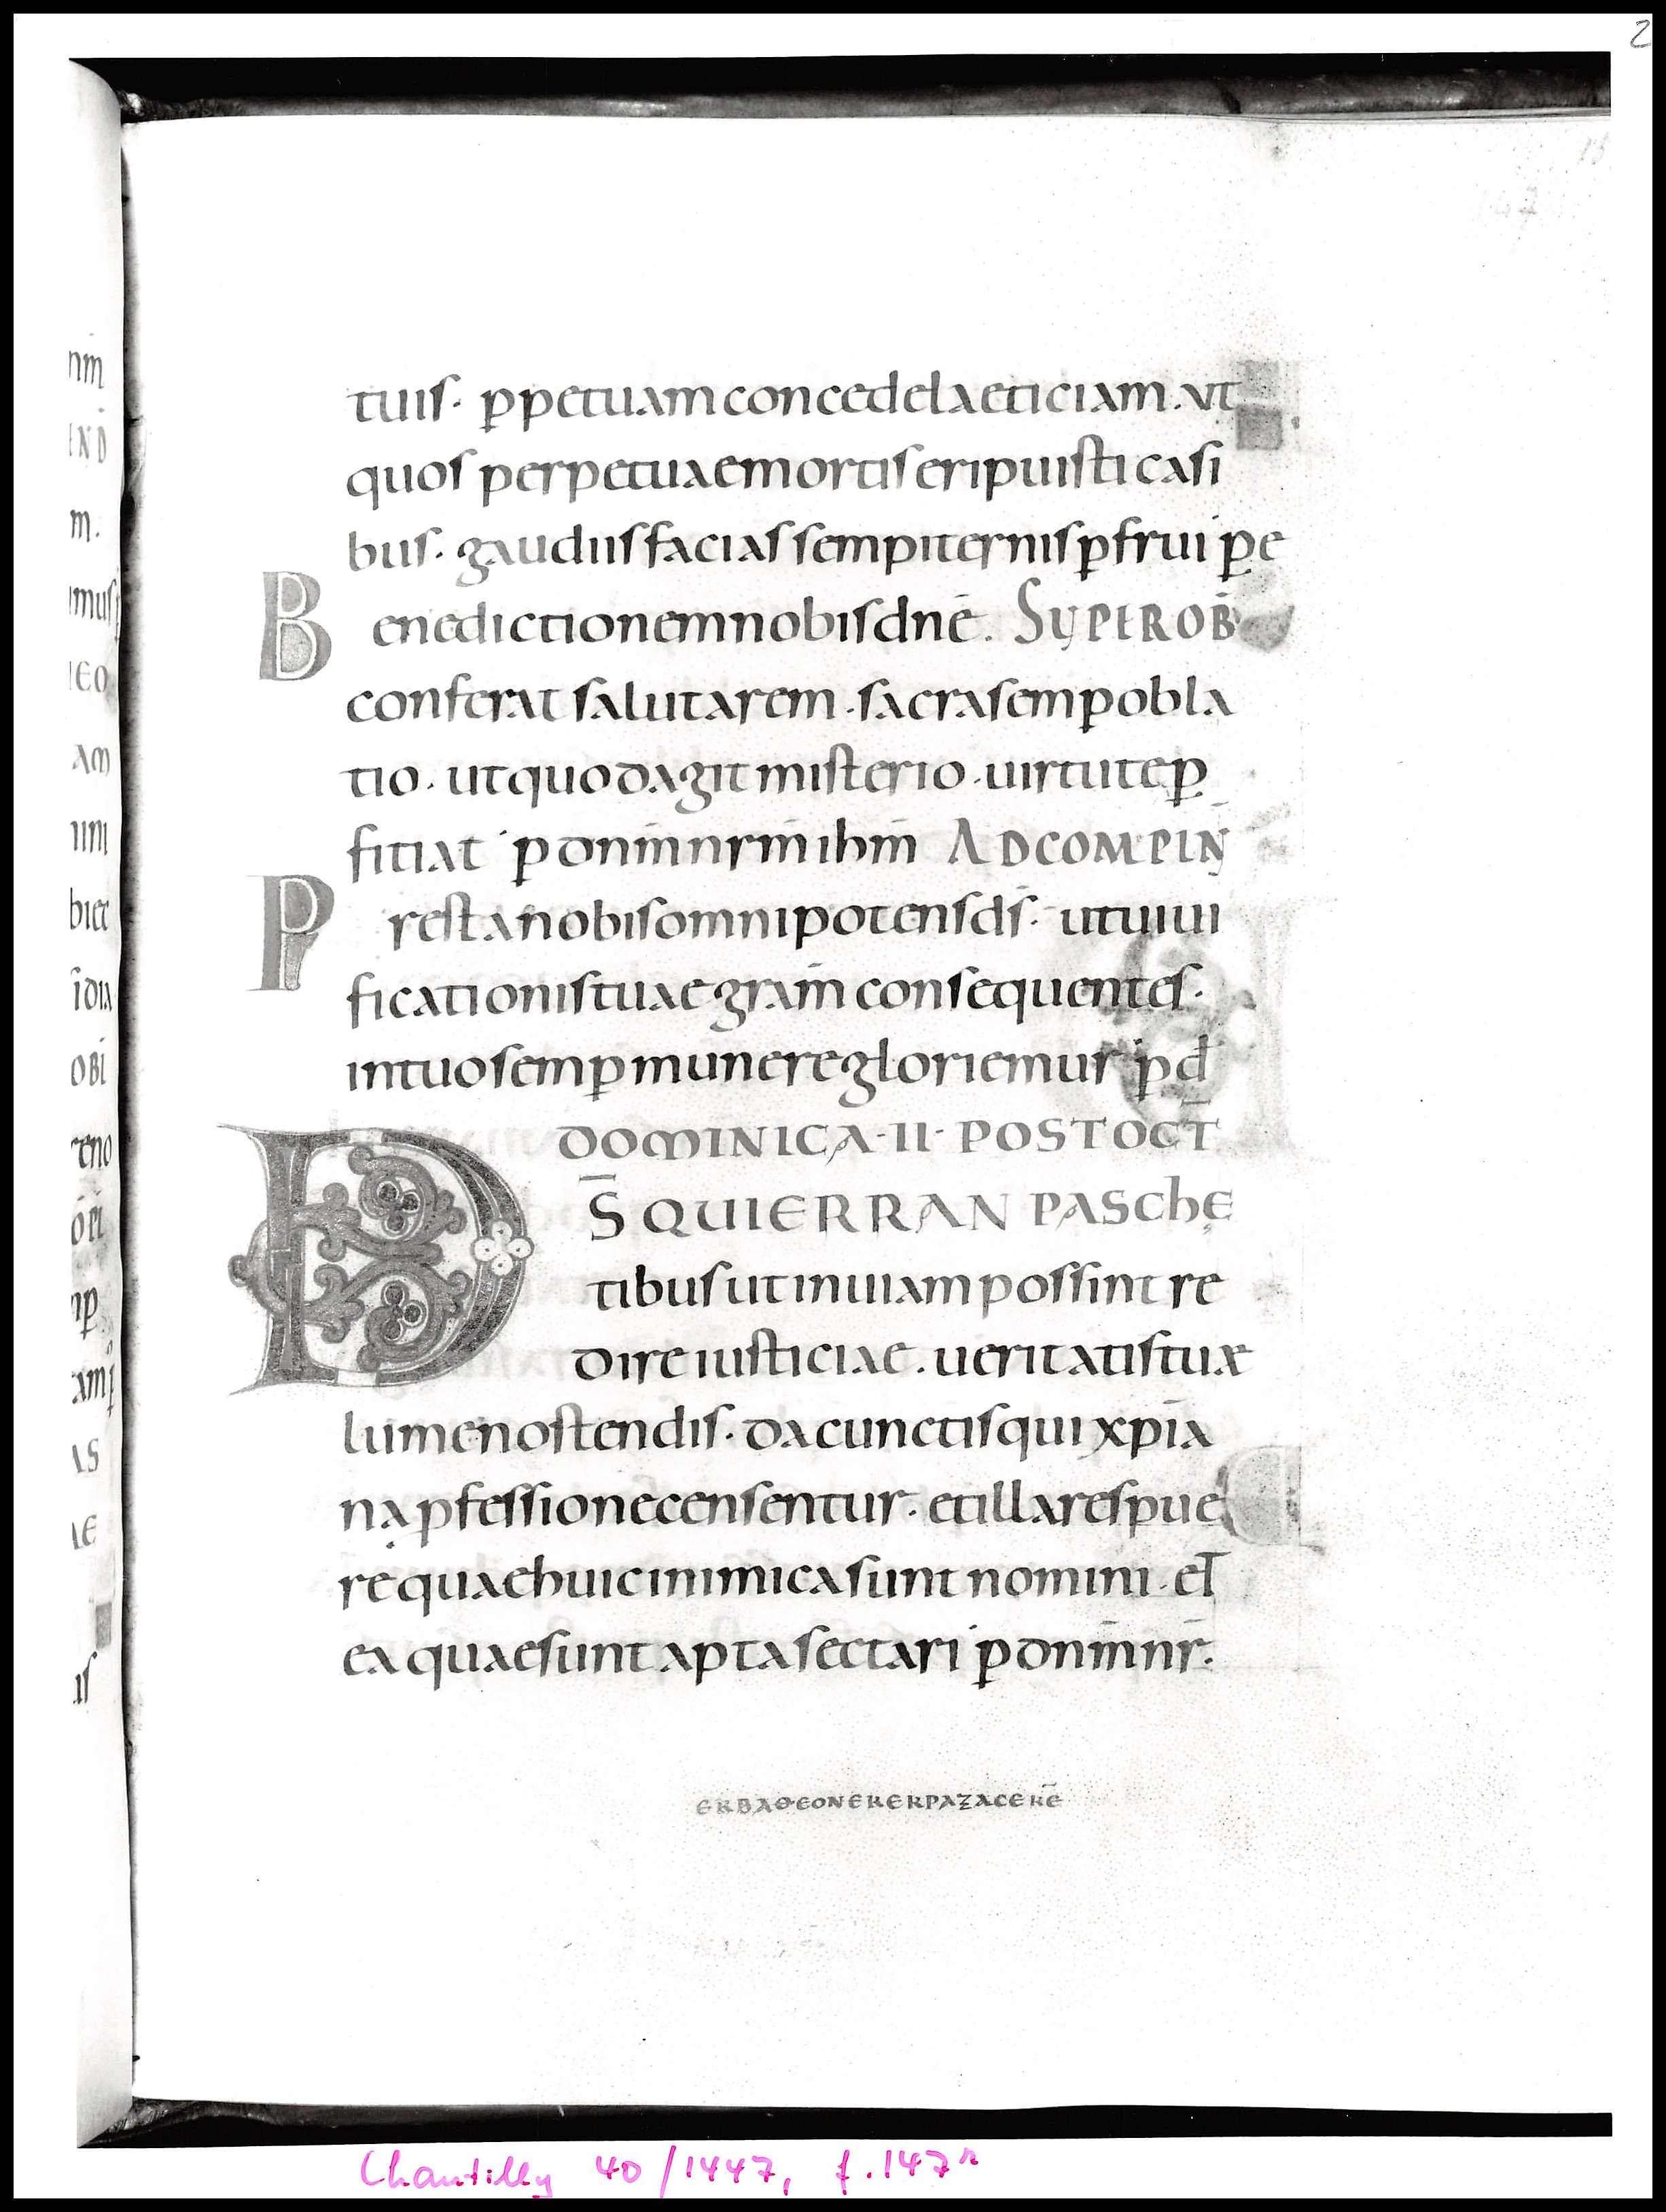 2
tuis· p̱petuam concede laeticiam. ut
quos perpetuae mortis eripuisti casi
bus· gaudiis facias sempiternis p̱frui p̱ e
Benedictionem nobis dnē. SUPER OB̄
conferat salutarem. sacra semp̱ obla
tio. ut quod agit misterio. uirtute p̱
fitiat p̱ dnm̄ nrm̄ ihm̄ AD COMPLN̄
Presta nobis omnipotens ds̄· ut uiui
ficationis tuae gram̄ consequentes·
in tuo semp̱ munere gloriemur p̱ d
DOMINICA·II·POST OCT̄
DS̄ QUI ERRAN PASCHĘ
tibus ut in uiam possint re
dire iusticiae. ueritatis tuae
lumen ostendis. da cunctis qui xp̄ia
na p̱fessione censentur. et illa respue
re quae huic inimica sunt nomini. et
ea quae sunt apta sectari p̱ dnm̄ nr̄.
Chantilly 40/1447, f. 147r